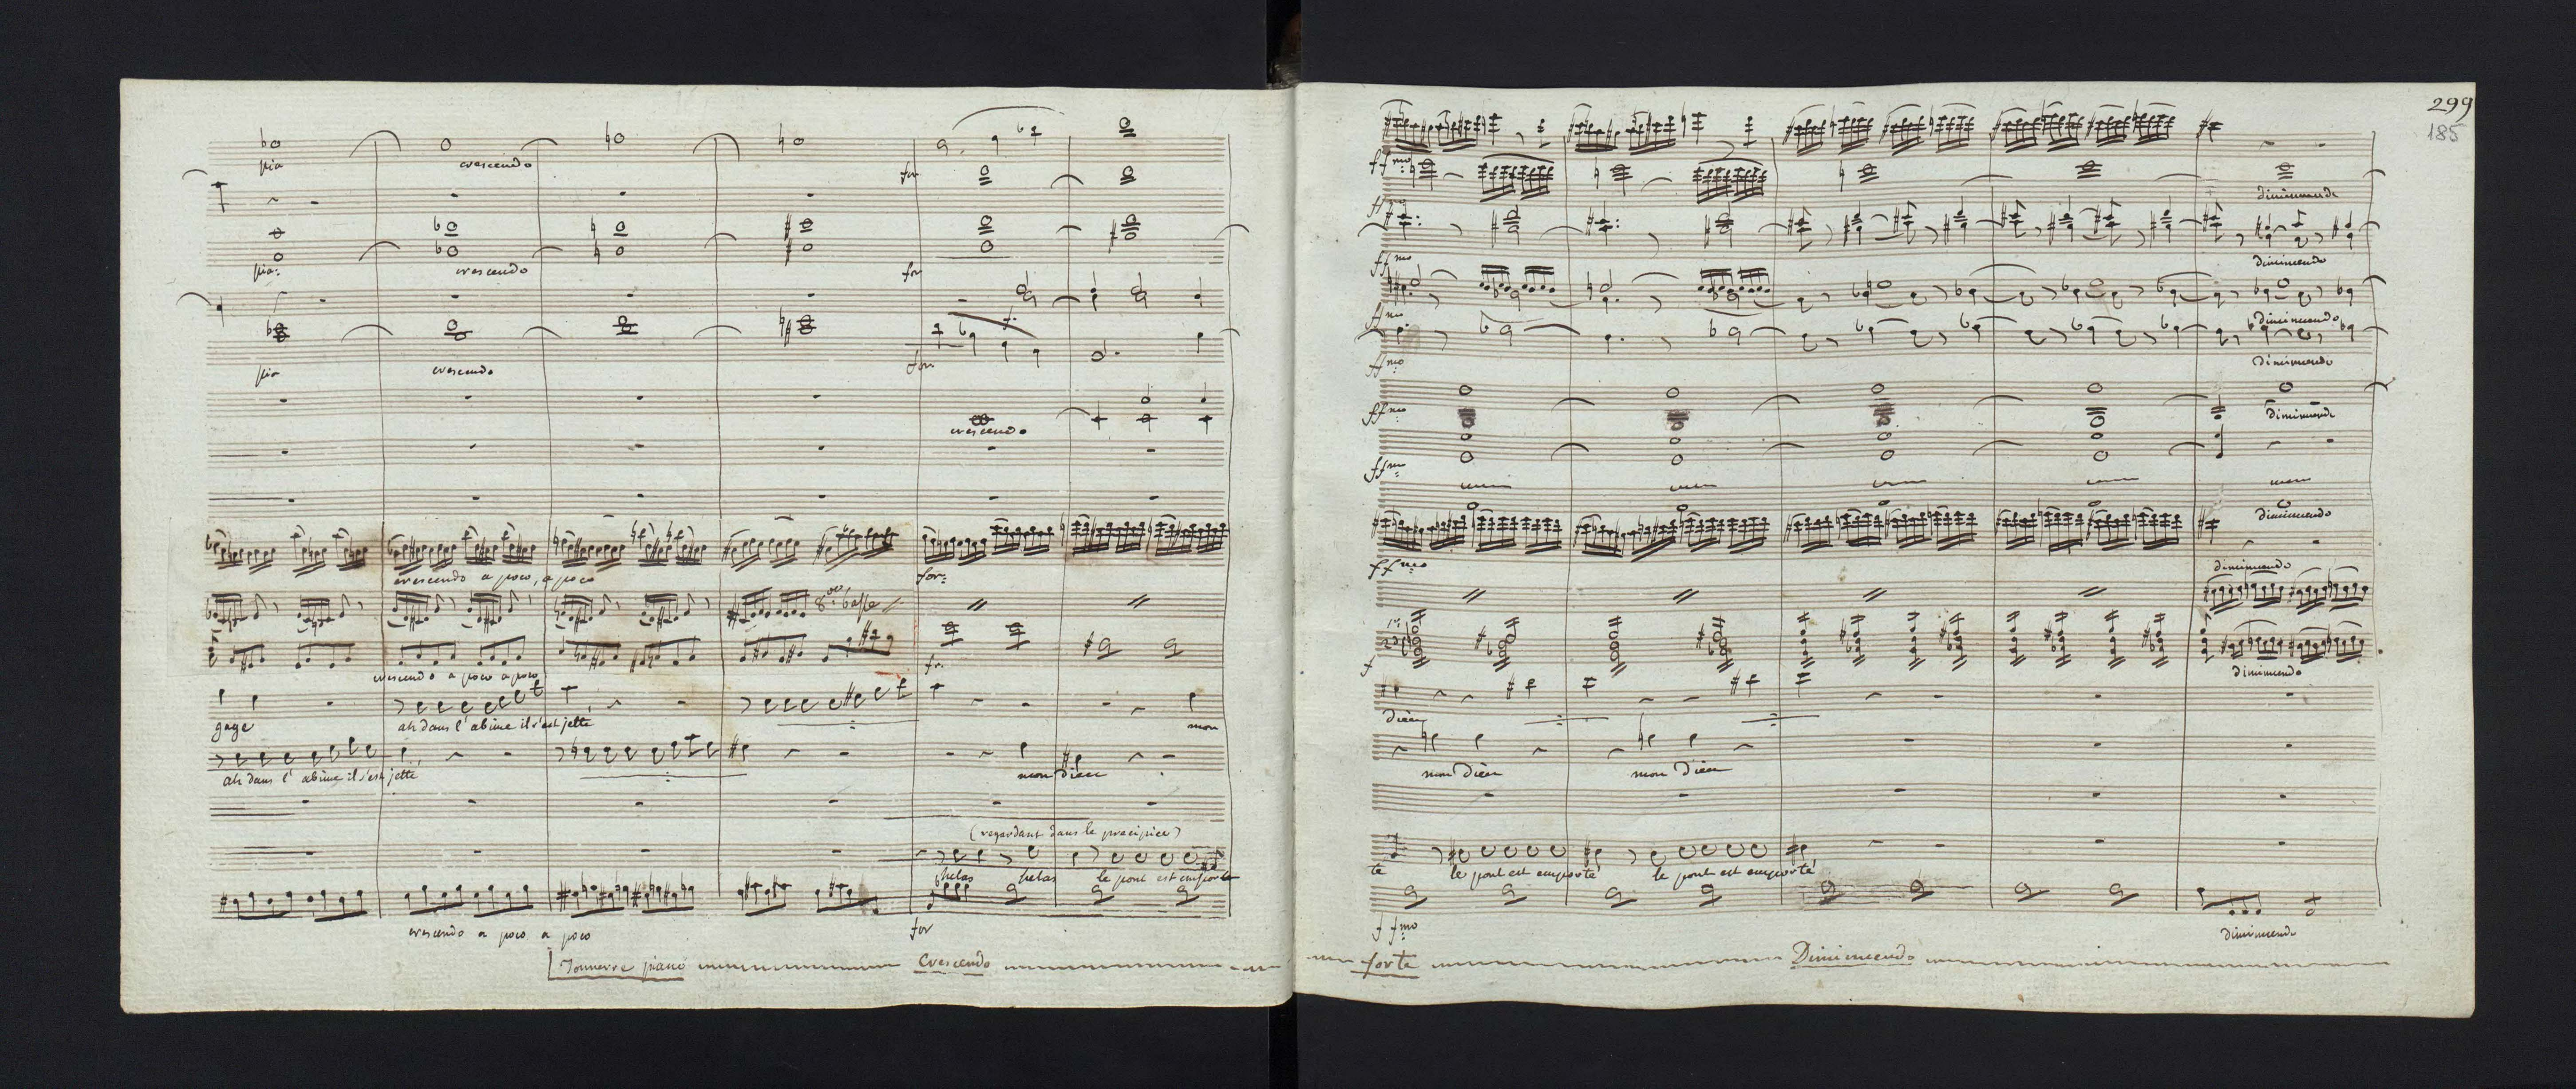 pia crescendo for
pia: crescendo for
f.
pia crescendo for
crescendo
crescendo a poco, a poco for:
8va bassa
crescendo a poco a poco fr.
gage ah dans l'abime il s'est jetté mon
ah dans l'abime il s'est jetté mon dieu
(regardant dans le precipice)
helas helas le pont est emporté
crescendo a poco a poco for
Tonnerre piano Crescendo
299
185
ffmo
ffmo diminuendo
ffmo diminuendo
ffmo diminuendo
ffmo diminuendo
ffmo diminuendo
ffmo
diminuendo
ffmo diminuendo
f diminuendo
dieu
mon dieu mon dieu
té le pont est emporté le pont est emporté
ffmo diminuendo
forte Diminuendo